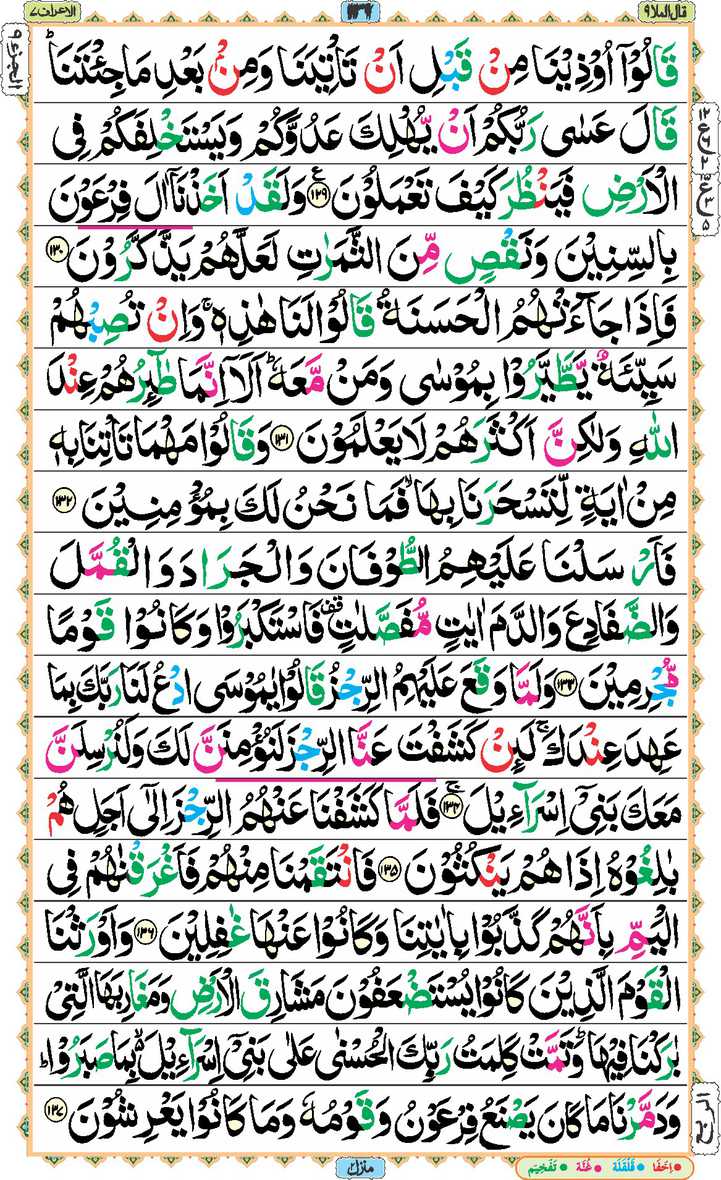 قال الملا ٩
١٣٢
الاعراف ٧
قَالُوْۤا اُوْذِيْنَا مِنْ قَبْلِ اَنْ تَاْتِيَنَا وَمِنْۢ بَعْدِ مَا جِئْتَنَا ؕ
قَالَ عَسٰى رَبُّكُمْ اَنْ يُّهْلِكَ عَدُوَّكُمْ وَيَسْتَخْلِفَكُمْ فِى
الْاَرْضِ فَيَنْظُرَ كَيْفَ تَعْمَلُوْنَ ﴿۱۲۹﴾ وَلَقَدْ اَخَذْنَاۤ اٰلَ فِرْعَوْنَ
بِالسِّنِيْنَ وَنَقْصٍ مِّنَ الثَّمَرٰتِ لَعَلَّهُمْ يَذَّكَّرُوْنَ ﴿۱۳۰﴾
فَاِذَا جَآءَتْهُمُ الْحَسَنَةُ قَالُوْا لَنَا هٰذِهٖ ۚ وَاِنْ تُصِبْهُمْ
سَيِّئَةٌ يَّطَّيَّرُوْا بِمُوْسٰى وَمَنْ مَّعَهٗ ؕ اَلَاۤ اِنَّمَا طٰٓئِرُهُمْ عِنْدَ
اللّٰهِ وَلٰكِنَّ اَكْثَرَهُمْ لَا يَعْلَمُوْنَ ﴿۱۳۱﴾ وَقَالُوْا مَهْمَا تَاْتِنَا بِهٖ
مِنْ اٰيَةٍ لِّتَسْحَرَنَا بِهَا ۙ فَمَا نَحْنُ لَكَ بِمُؤْمِنِيْنَ ﴿۱۳۲﴾
فَاَرْسَلْنَا عَلَيْهِمُ الطُّوْفَانَ وَالْجَرَادَ وَالْقُمَّلَ
وَالضَّفَادِعَ وَالدَّمَ اٰيٰتٍ مُّفَصَّلٰتٍ ۟ فَاسْتَكْبَرُوْا وَكَانُوْا قَوْمًا
مُّجْرِمِيْنَ ﴿۱۳۳﴾ وَلَمَّا وَقَعَ عَلَيْهِمُ الرِّجْزُ قَالُوْا يٰمُوْسَى ادْعُ لَنَا رَبَّكَ بِمَا
عَهِدَ عِنْدَكَ ۚ لَئِنْ كَشَفْتَ عَنَّا الرِّجْزَ لَنُؤْمِنَنَّ لَكَ وَلَنُرْسِلَنَّ
مَعَكَ بَنِىْۤ اِسْرَآءِيْلَ ۚ ﴿۱۳۴﴾ فَلَمَّا كَشَفْنَا عَنْهُمُ الرِّجْزَ اِلٰٓى اَجَلٍ هُمْ
بٰلِغُوْهُ اِذَا هُمْ يَنْكُثُوْنَ ﴿۱۳۵﴾ فَانْتَقَمْنَا مِنْهُمْ فَاَغْرَقْنٰهُمْ فِى
الْيَمِّ بِاَنَّهُمْ كَذَّبُوْا بِاٰيٰتِنَا وَكَانُوْا عَنْهَا غٰفِلِيْنَ ﴿۱۳۶﴾ وَاَوْرَثْنَا
الْقَوْمَ الَّذِيْنَ كَانُوْا يُسْتَضْعَفُوْنَ مَشَارِقَ الْاَرْضِ وَمَغَارِبَهَا الَّتِىْ
بٰرَكْنَا فِيْهَا ؕ وَتَمَّتْ كَلِمَتُ رَبِّكَ الْحُسْنٰى عَلٰى بَنِىْۤ اِسْرَآءِيْلَ ۙ بِمَا صَبَرُوْا ؕ
وَدَمَّرْنَا مَا كَانَ يَصْنَعُ فِرْعَوْنُ وَقَوْمُهٗ وَمَا كَانُوْا يَعْرِشُوْنَ ﴿۱۳۷﴾
منزل ٢
اخفا • قلقلة • غنة • تفخيم